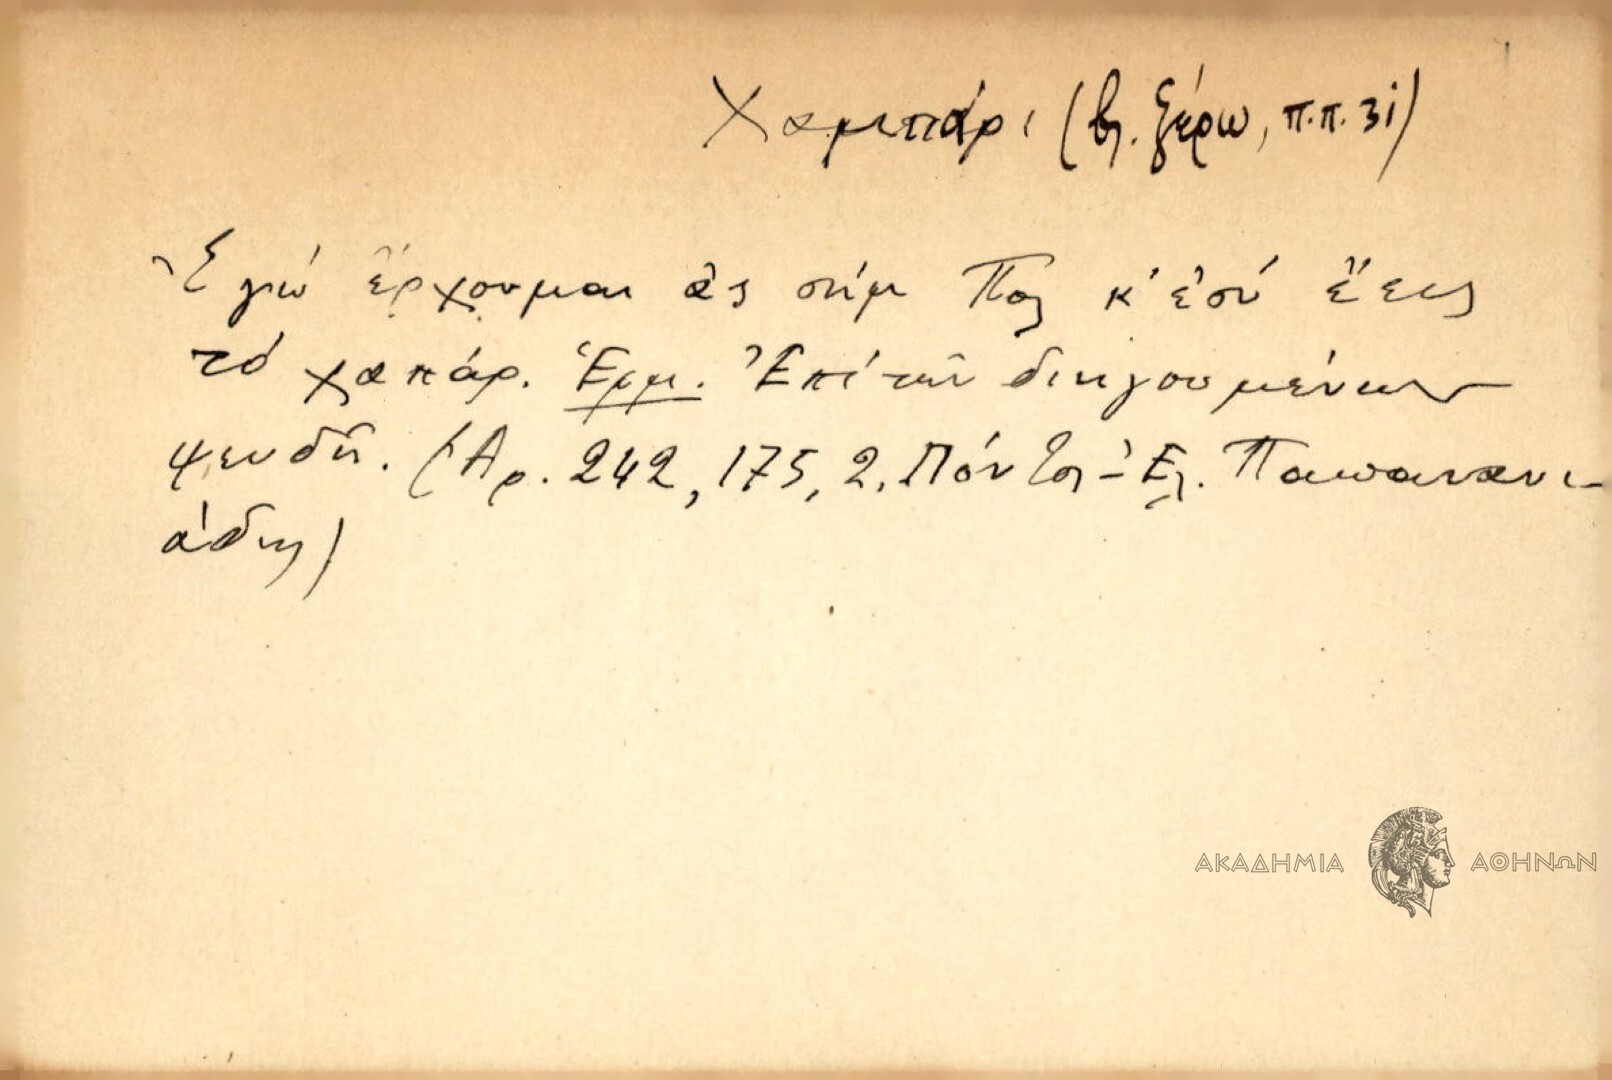 Χαμπάρι (βλ. ξέρω, π.π. 31)
Ἐγώ ἔρχουμαι ἀς σήμ Πολ κ' ἐσύ ἔεις
τό χαπάρ. Ἑρμ. Ἐπί τῶν διηγουμένων
ψευδῆ. (Ἀρ. 242, 175, 2. Πόντος - Ἐλ. Παπανανι-
άδης)
ΑΚΑΔΗΜΙΑ ΑΘΗΝΩΝ